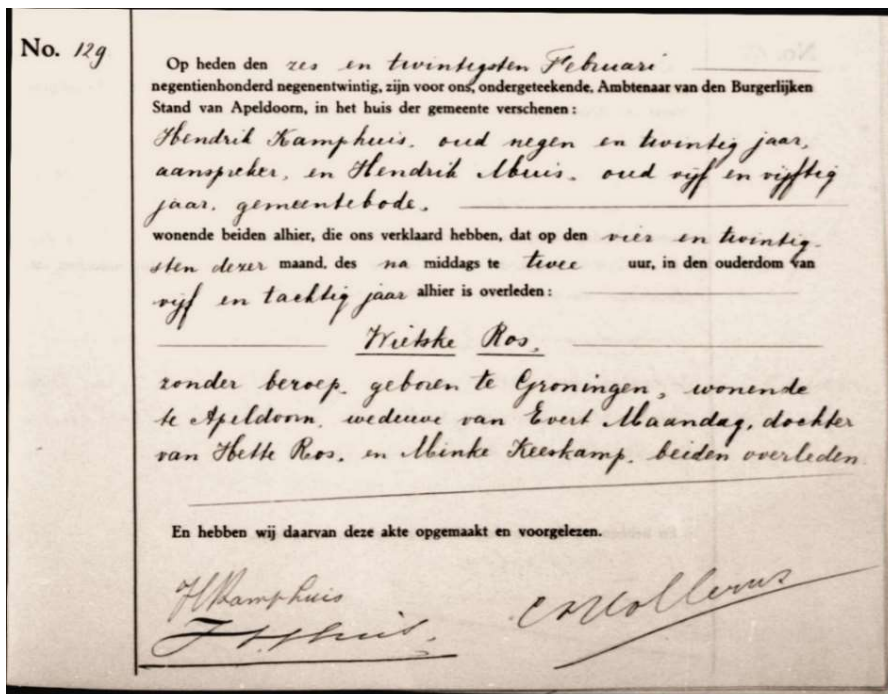 No. 129
Op heden den zes en twintigsten Februari
negentienhonderd negenentwintig, zijn voor ons, ondergeteekende, Ambtenaar van den Burgerlijken
Stand van Apeldoorn, in het huis der gemeente verschenen:
Hendrik Kamphuis, oud negen en twintig jaar,
aanspreker, en Hendrik Muis, oud vijf en vijftig
jaar, gemeentebode,
wonende beiden alhier, die ons verklaard hebben, dat op den vier en twintig-
sten dezer maand, des na middags te twee uur, in den ouderdom van
vijf en tachtig jaar alhier is overleden:
Wietske Ros,
zonder beroep, geboren te Groningen, wonende
te Apeldoorn, weduwe van Evert Maandag, dochter
van Hette Ros, en Minke Keeskamp, beiden overleden
En hebben wij daarvan deze akte opgemaakt en voorgelezen.
HKamphuis